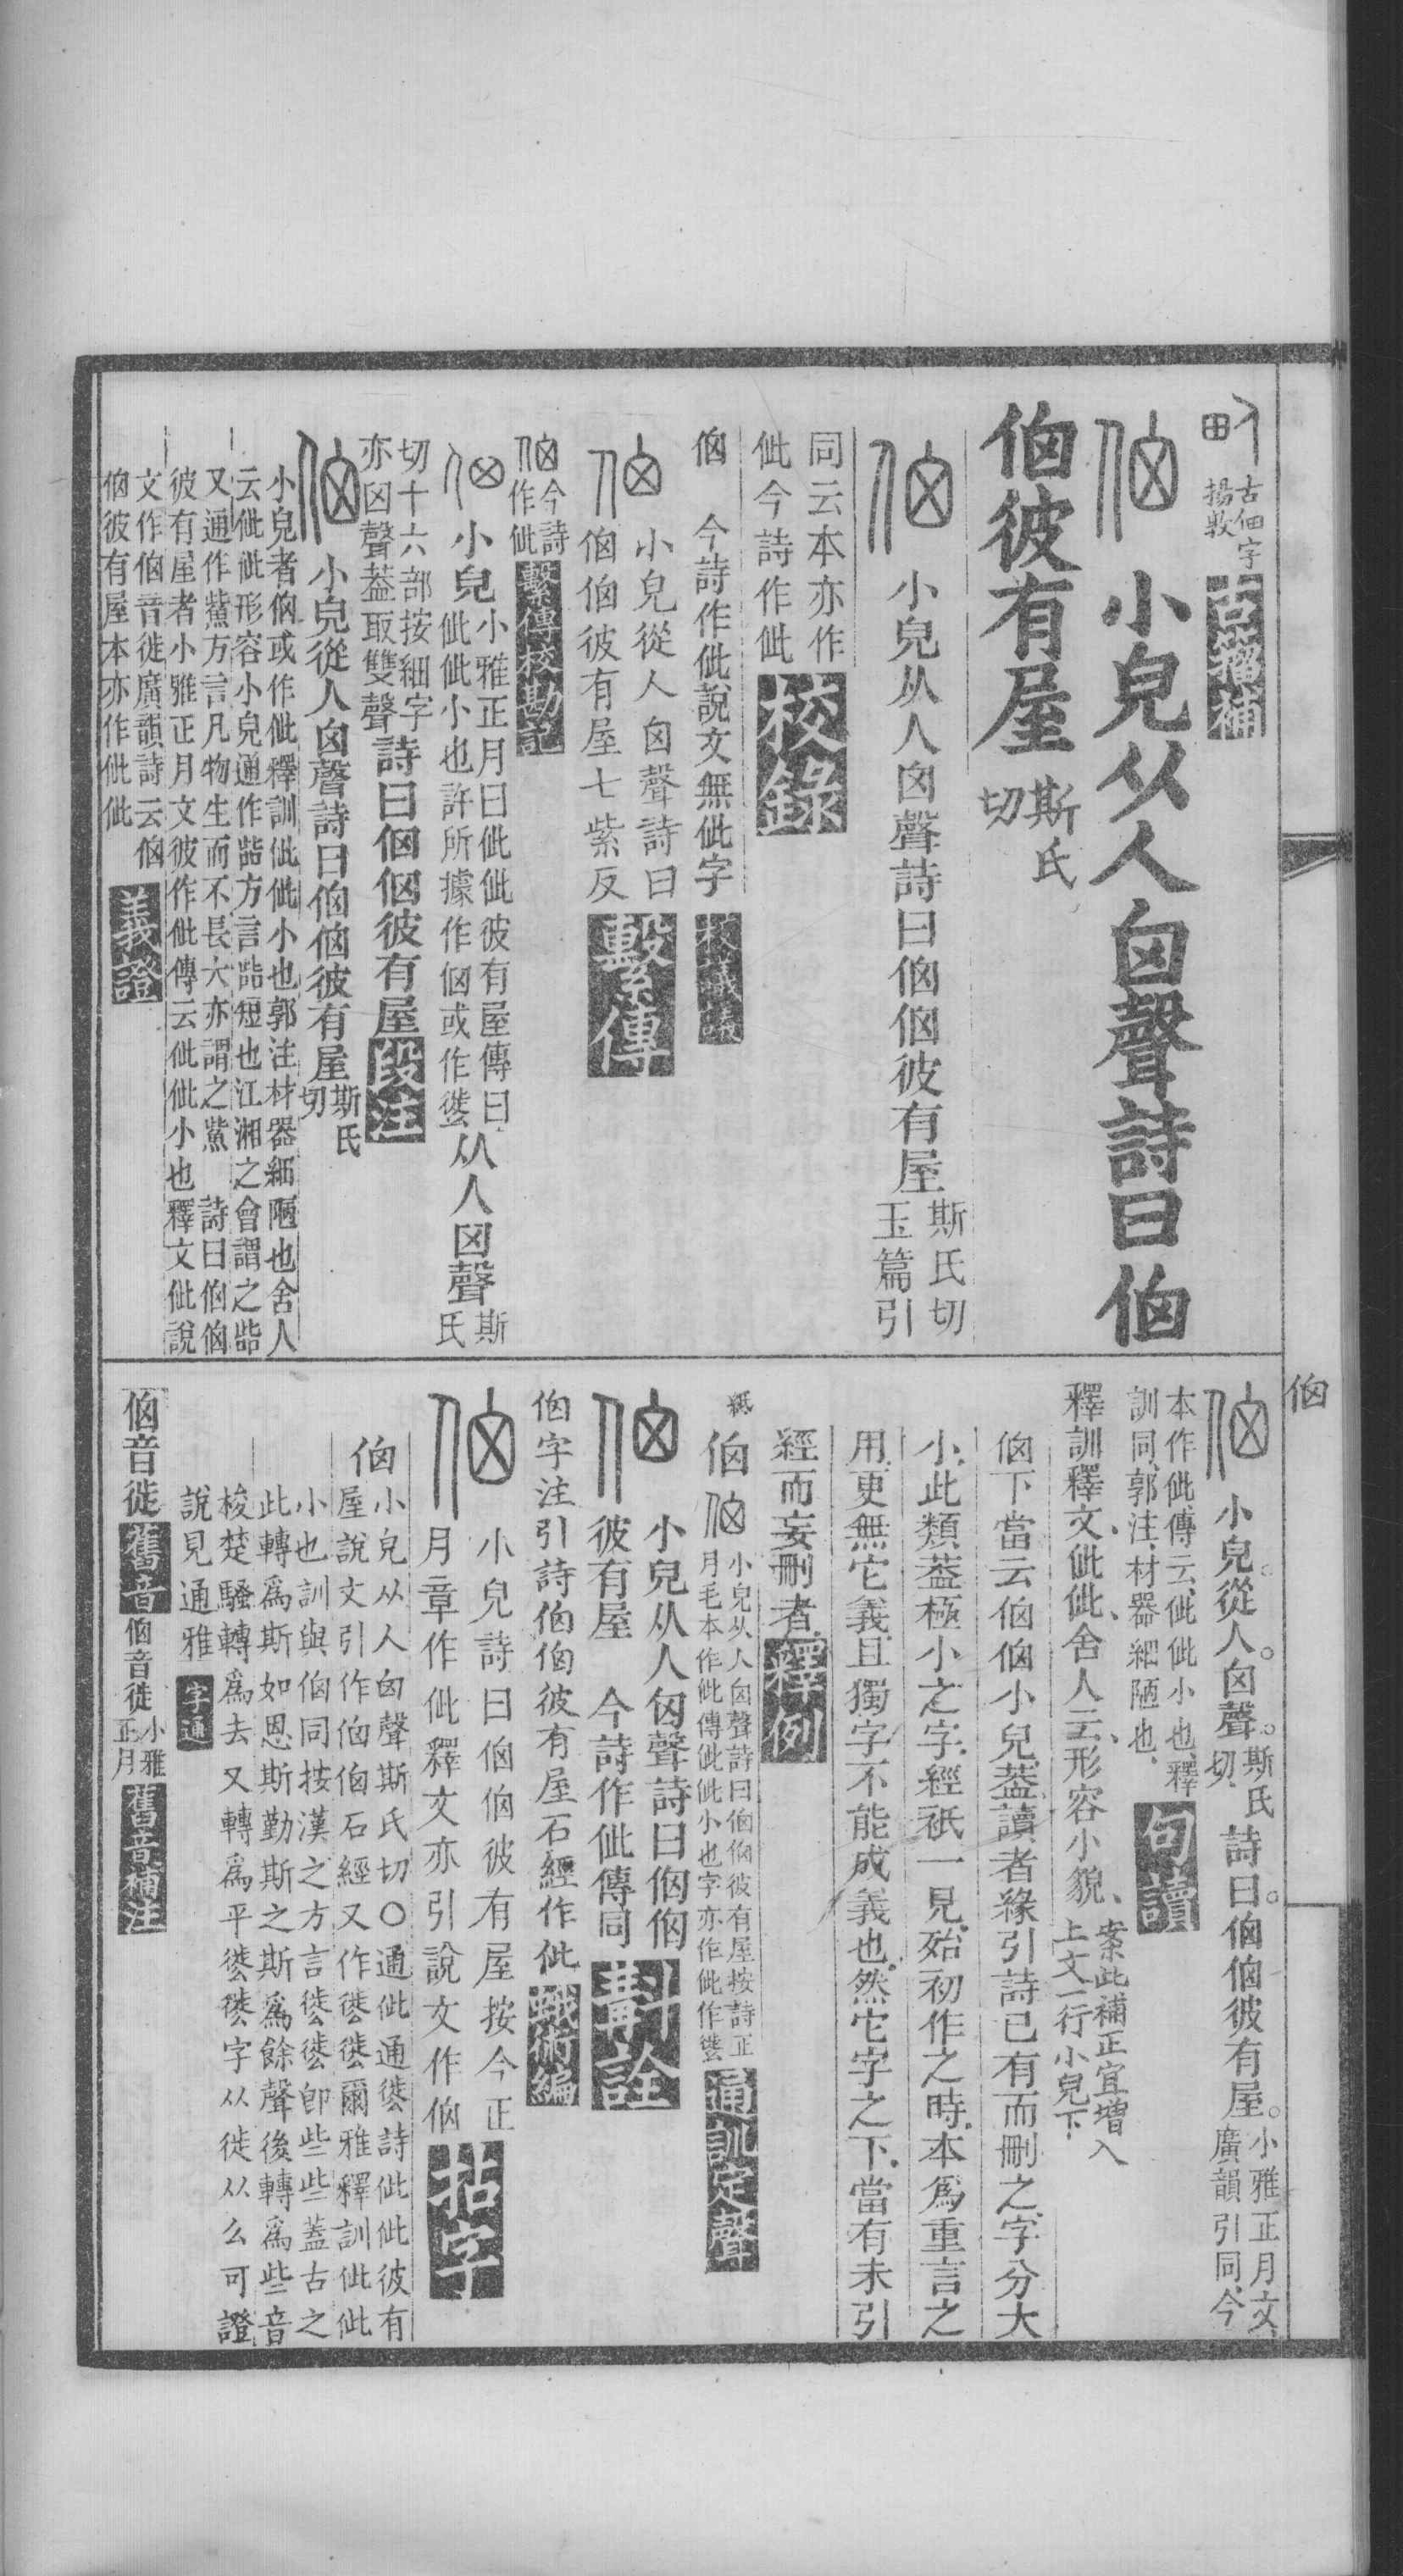 古佃字
揚敦
古籒補
小皃从人囟聲詩曰㑋
㑋彼有屋
斯氏
切
小皃从人囟聲詩曰㑋㑋彼有屋
斯氏切
玉篇引
同云本亦作
佌今詩作佌
校錄
㑋
今詩作佌說文無佌字
校議議
小皃從人囟聲詩曰
㑋㑋彼有屋七紫反
繫傳
今詩
作佌
繫傳校勘記
小皃
小雅正月曰佌佌彼有屋傳曰
佌佌小也許所據作㑋或作㒋
从人囟聲
斯
氏
切十六部按細字
亦囟聲葢取雙聲
詩曰㑋㑋彼有屋
段注
小皃從人囟聲詩曰㑋㑋彼有屋
斯氏
切
小皃者㑋或作佌釋訓佌佌小也郭注材器細陋也舍人
云佌佌形容小皃通作啙方言啙短也江湘之會謂之啙
又通作鮆方言凡物生而不長大亦謂之鮆 詩曰㑋㑋
彼有屋者小雅正月文彼作佌傳云佌佌小也釋文佌說
文作㑋音徙廣韻詩云㑋
㑋彼有屋本亦作佌佌
義證
㑋
小皃從人囟聲
斯氏
切
詩曰㑋㑋彼有屋
小雅正月文
廣韻引同今
本作佌傳云佌佌小也釋
訓同郭注材器細陋也
句讀
釋訓釋文佌佌舍人云形容小貌
案此補正宜增入
上文一行小皃下
㑋下當云㑋㑋小皃葢讀者緣引詩已有而刪之字分大
小此類葢極小之字經衹一見殆初作之時本爲重言之
用更無它義且獨字不能成義也然它字之下當有未引
經而妄刪者
釋例
㑋
小皃从人囟聲詩曰㑋㑋彼有屋按詩正
月毛本作佌傳佌佌小也字亦作佌作㒋
通訓定聲
小皃从人囟聲詩曰㑋㑋
彼有屋 今詩作佌傳同
斠詮
㑋字注引詩㑋㑋彼有屋石經作佌
蛾術編
小皃詩曰㑋㑋彼有屋按今正
月章作佌釋文亦引說文作㑋
拈字
㑋
小皃从人囟聲斯氏切〇通佌通㒋詩佌佌彼有
屋說文引作㑋㑋石經又作㒋㒋爾雅釋訓佌佌
小也訓與㑋同按漢之方言㒋㒋卽些些蓋古之
此轉爲斯如恩斯勤斯之斯爲餘聲後轉爲些音
梭楚騷轉爲去又轉爲平㒋㒋字从徙从么可證
說見通雅
字通
㑋音徙
舊音
㑋音徙
小雅
正月
舊音補注
㑋